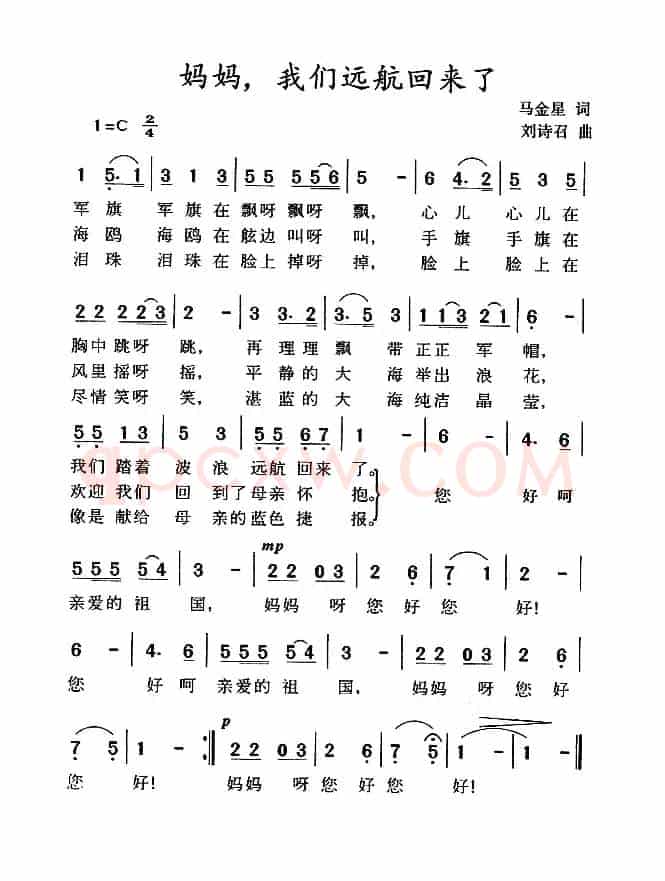 妈妈，我们远航回来了
马金星 词
1=C 2/4
刘诗召 曲
1 5. 1 | 3 1 3 | 5 5 5 5 6 | 5 - | 6 4. 2 | 5 5 5 |
军旗 军旗在飘呀飘呀 飘， 心儿 心儿在
海鸥 海鸥在舷边叫呀 叫， 手旗 手旗在
泪珠 泪珠在脸上掉呀 掉， 脸上 脸上在
2 2 2 2 3 | 2 - | 3 3. 2 | 3. 5 3 | 1 1 3 2 1 | 5 - |
胸中跳呀 跳， 再 理理飘 带正正 军 帽，
风里摇呀 摇， 平静的大 海举出 浪 花，
尽情笑呀 笑， 湛蓝的大 海纯洁 晶 莹，
5 5 1 3 | 5 3 | 5 5 6 7 | 1 - | 6 - | 4. 6 |
我们踏着 波 浪 远航回来 了。
欢迎我们 回 到了母亲怀 抱。 您 好呵
像是献给 母 亲的蓝色捷 报。
mp
5 5 5 5 4 | 3 - | 2 2 0 3 | 2 6 | 7 1 | 2 - |
亲爱的祖 国， 妈妈 呀您好您 好！
6 - | 4. 6 | 5 5 5 5 4 | 3 - | 2 2 0 3 | 2 6 |
您 好呵亲爱的祖 国， 妈妈 呀您好
p
7 5 | 1 - :| 2 2 0 3 | 2 6 | 7 5 | 1 - | 1 - ‖
您 好！ 妈妈 呀您好您 好！
qpcxw.com